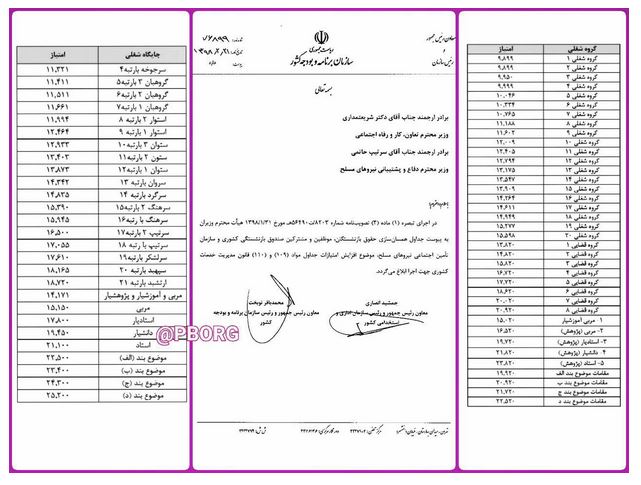 گروه شغلی امتیاز
گروه شغلی ۱ ۹,۸۹۹
گروه شغلی ۲ ۹,۸۹۹
گروه شغلی ۳ ۹,۹۵۰
گروه شغلی ۴ ۹,۹۹۹
گروه شغلی ۵ ۱۰,۰۴۶
گروه شغلی ۶ ۱۰,۳۳۴
گروه شغلی ۷ ۱۰,۷۶۵
گروه شغلی ۸ ۱۱,۱۸۸
گروه شغلی ۹ ۱۱,۶۰۲
گروه شغلی ۱۰ ۱۲,۰۰۹
گروه شغلی ۱۱ ۱۲,۴۰۵
گروه شغلی ۱۲ ۱۲,۷۹۴
گروه شغلی ۱۳ ۱۳,۱۷۵
گروه شغلی ۱۴ ۱۳,۵۴۷
گروه شغلی ۱۵ ۱۳,۹۰۹
گروه شغلی ۱۶ ۱۴,۲۶۴
گروه شغلی ۱۷ ۱۴,۶۱۱
گروه شغلی ۱۸ ۱۴,۹۴۹
گروه شغلی ۱۹ ۱۵,۲۷۷
گروه شغلی ۲۰ ۱۵,۵۹۸
گروه قضایی ۱ ۱۳,۸۲۰
گروه قضایی ۲ ۱۴,۸۲۰
گروه قضایی ۳ ۱۵,۸۲۰
گروه قضایی ۴ ۱۶,۷۲۰
گروه قضایی ۵ ۱۷,۷۲۰
گروه قضایی ۶ ۱۸,۶۲۰
گروه قضایی ۷ ۲۰,۰۲۰
گروه قضایی ۸ ۲۰,۹۲۰
۱- مربی آموزشیار ۱۵,۰۲۰
۲- مربی (پژوهش) ۱۶,۵۲۰
۳- استادیار (پژوهش) ۱۹,۷۲۰
۴- دانشیار (پژوهش) ۲۱,۲۲۰
۵- استاد (پژوهش)
مقامات موضوع بند الف ۱۹,۹۲۰
مقامات موضوع بند ب ۲۰,۹۲۰
مقامات موضوع بند ج ۲۱,۷۲۰
مقامات موضوع بند د ۲۲,۵۲۰
معاون رئیس جمهور
و
رئیس سازمان
ریاست جمهوری
سازمان برنامه و بودجه کشور
بسمه تعالی
برادر ارجمند جناب آقای دکتر شریعتمداری
وزیر محترم تعاون، کار و رفاه اجتماعی
برادر ارجمند جناب آقای سرتیپ حاتمی
وزیر محترم دفاع و پشتیبانی نیروهای مسلح
در اجرای تبصره (۱) ماده (۲) تصویب‌نامه شماره ۸۲۰۳/ت۵۶۴۹۰هـ مورخ ۱۳۹۸/۱/۳۱ هیأت محترم وزیران
به پیوست جداول همسان‌سازی حقوق بازنشستگان، موظفین و مشترکین صندوق بازنشستگی کشوری و سازمان
تأمین اجتماعی نیروهای مسلح، موضوع افزایش امتیازات جداول مواد (۱۰۹) و (۱۱۰) قانون مدیریت خدمات
کشوری جهت اجرا ابلاغ می‌گردد.
جمشید انصاری
معاون رئیس جمهور و رئیس سازمان اداری و
استخدامی کشور
محمدباقر نوبخت
معاون رئیس جمهور و رئیس سازمان برنامه و بودجه
کشور
جایگاه شغلی امتیاز
سرجوخه بارتبه۴ ۱۱,۳۲۱
گروهبان ۳ بارتبه۵ ۱۱,۴۱۱
گروهبان ۲ بارتبه۶ ۱۱,۵۱۱
گروهبان ۱ بارتبه۷ ۱۱,۶۶۱
استوار ۲ بارتبه ۸ ۱۱,۹۹۴
استوار ۱ بارتبه ۹ ۱۲,۴۶۴
ستوان ۳ بارتبه۱۰ ۱۲,۹۳۳
ستون ۲ بارتبه ۱۱ ۱۳,۴۰۳
ستوان ۱ بارتبه۱۲ ۱۳,۸۷۳
سروان بارتبه ۱۳ ۱۴,۳۴۲
سرگرد بارتبه ۱۴ ۱۴,۸۳۵
سرهنگ ۲ بارتبه۱۵ ۱۵,۳۹۰
سرهنگ با رتبه۱۶ ۱۵,۹۴۵
سرتیپ ۲ بارتبه۱۷ ۱۶,۵۰۰
سرتیپ با رتبه ۱۸ ۱۷,۰۵۵
سرلشکر بارتبه۱۹ ۱۷,۶۱۰
سپهبد بارتبه ۲۰ ۱۸,۱۶۵
ارتشبد بارتبه ۲۱ ۱۸,۷۲۰
مربی و آموزشیار و پژوهشیار ۱۴,۱۷۱
مربی ۱۵,۱۵۰
استادیار ۱۷,۸۰۰
دانشیار ۱۹,۴۵۰
استاد ۲۱,۱۰۰
موضوع بند (الف) ۲۲,۵۰۰
موضوع بند (ب) ۲۳,۴۰۰
موضوع بند (ج) ۲۴,۳۰۰
موضوع بند (د) ۲۵,۲۰۰
@PBORG